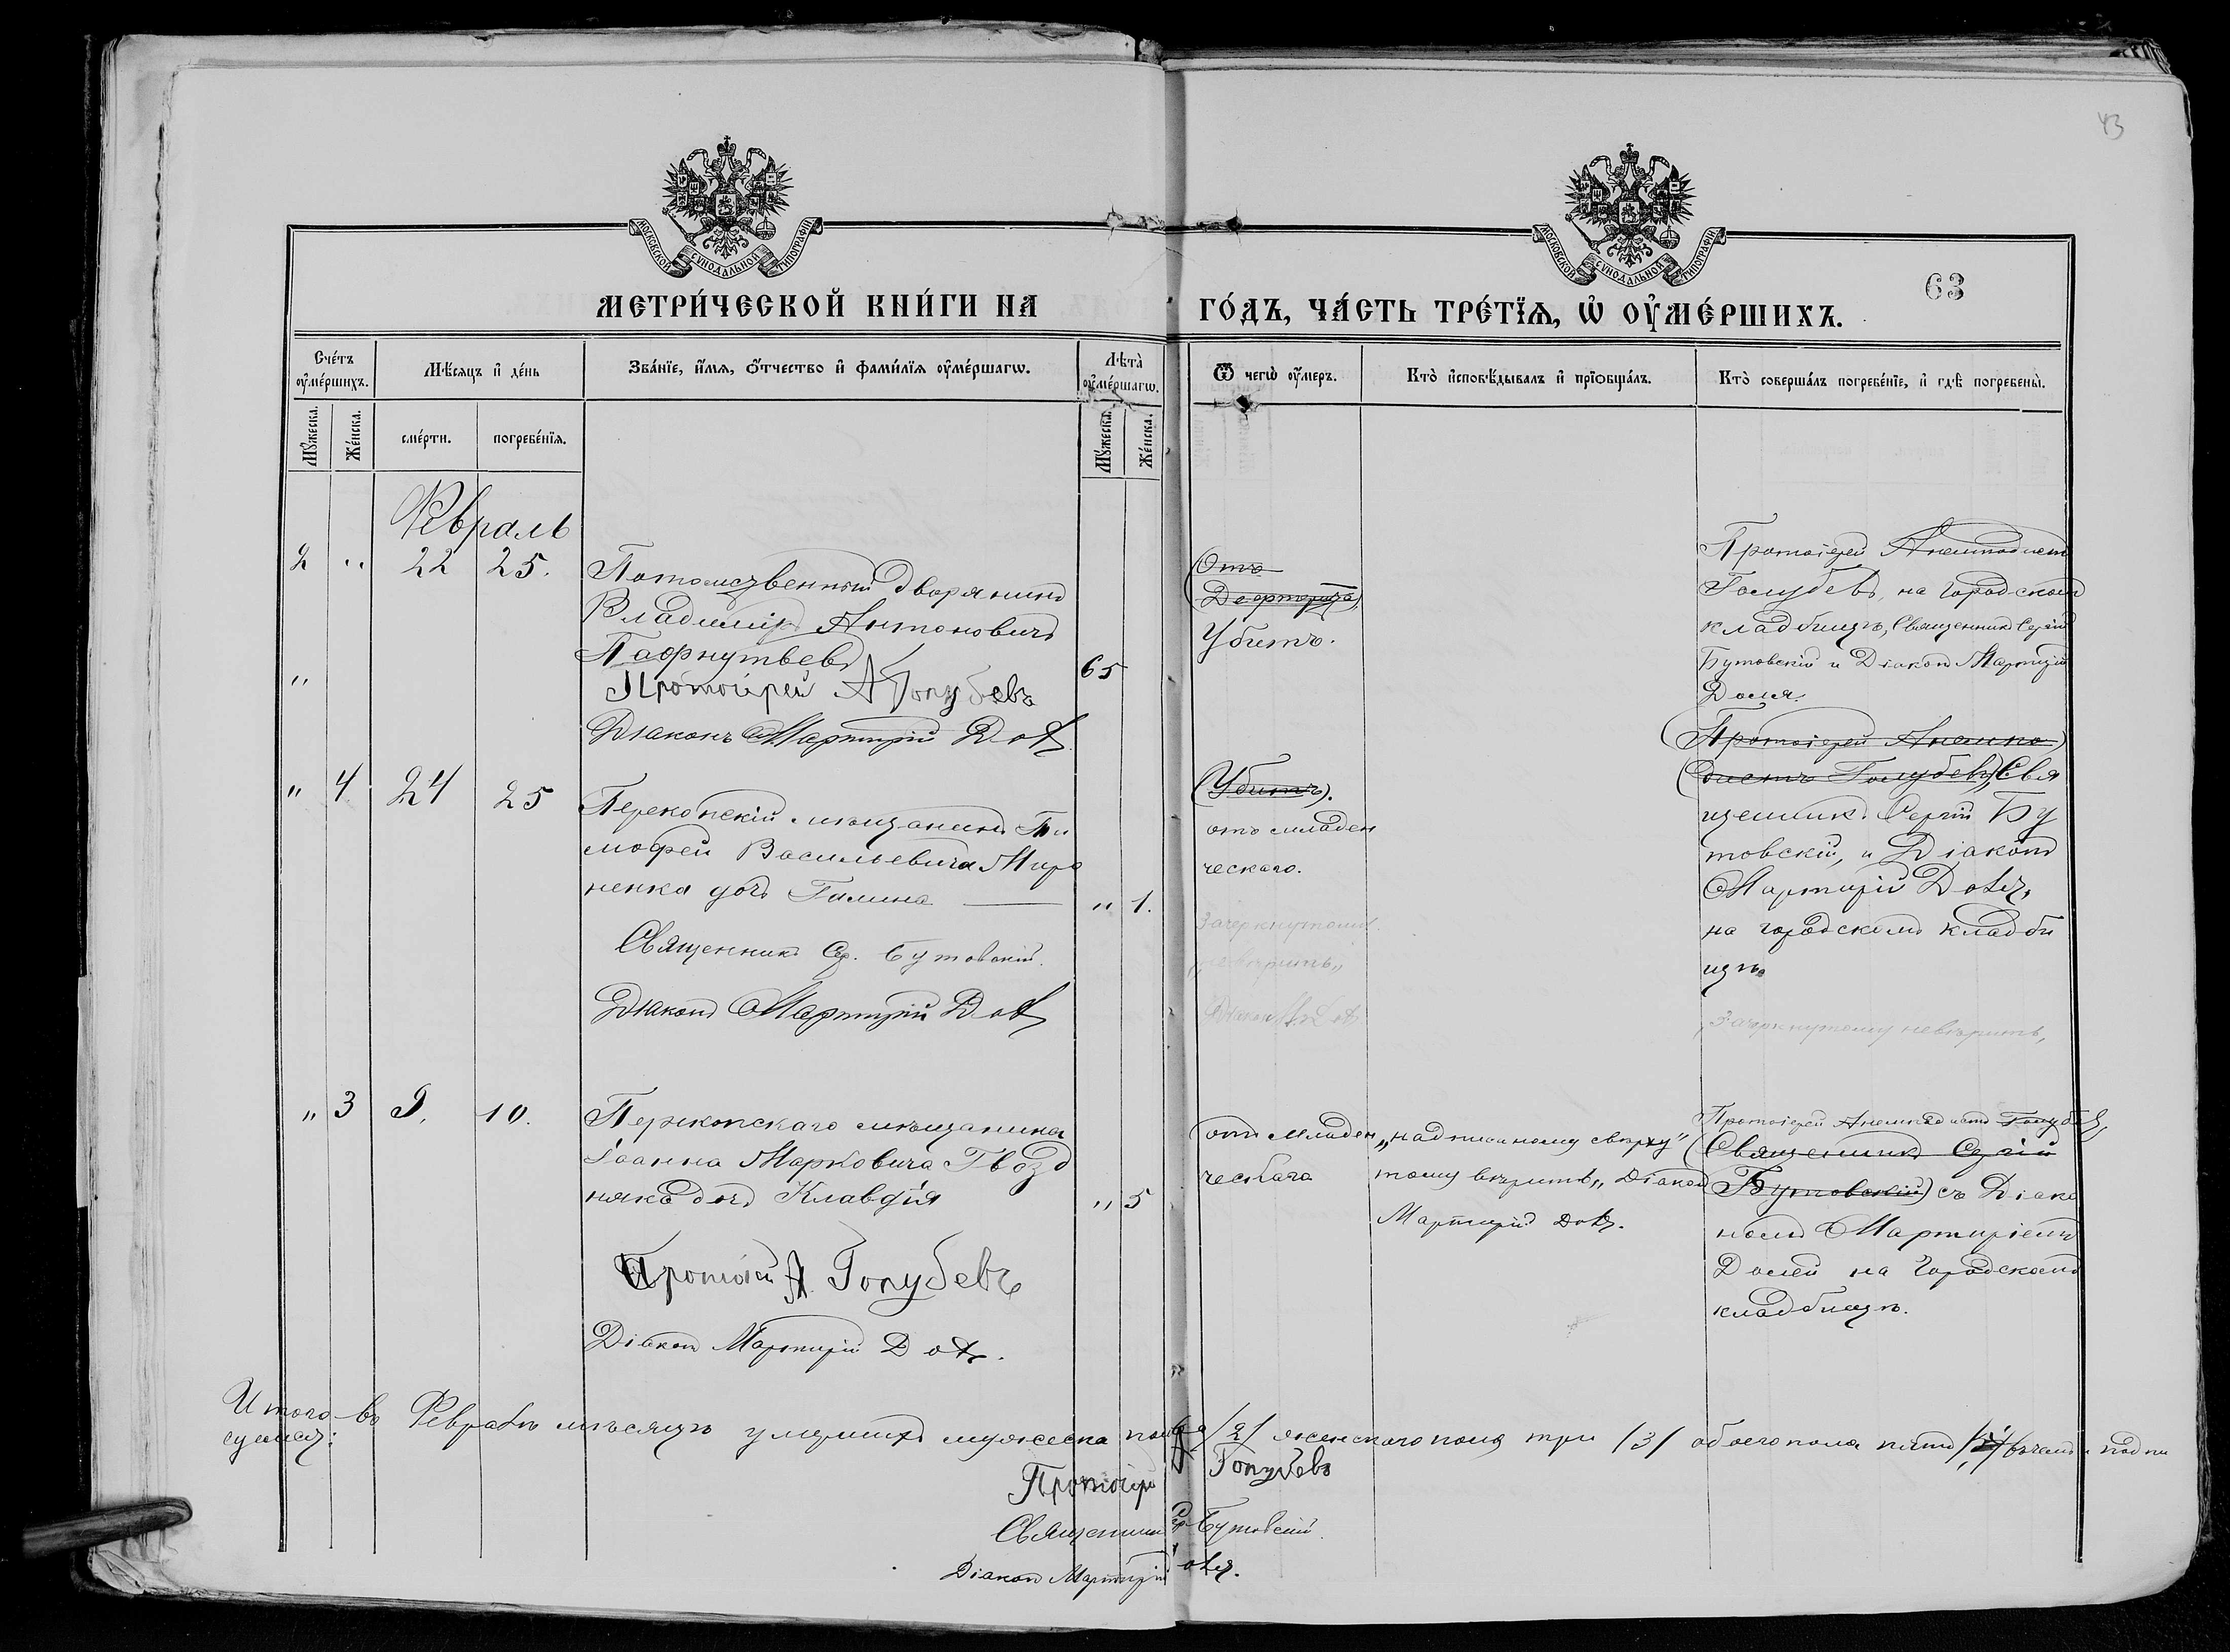 43
МОСКОВСКОЙ СѴНОДАЛЬНОЙ ТИПОГРАФІИ
МОСКОВСКОЙ СѴНОДАЛЬНОЙ ТИПОГРАФІИ
63
МЕТРИ́ЧЕСКОЙ КНИ́ГИ НА ГО́ДЪ, ЧА́СТЬ ТРЕ́ТЇѦ, Ѡ҆ ОУ҆МЕ́РШИХЪ.
Сче́тъ оу҆ме́ршихъ.
Мѣ́сяцъ и҆ де́нь
Зва́нїе, и҆́мѧ, ѻ҆́тчество и҆ фами́лїѧ оу҆ме́ршагѡ.
Лѣ́та оу҆ме́ршагѡ.
Ѿ чегѡ̀ оу҆́меръ.
Кто̀ и҆сповѣ́дывалъ и҆ прїѡбща́лъ.
Кто̀ соверша́лъ погребе́нїе, и҆ гдѣ̀ погребены̀.
Мꙋ́жеска.
Же́нска.
сме́рти.
погребе́нїѧ.
Мꙋ́жеска.
Же́нска.
Февраль
2 " 22 25.
Потомственный дворянинъ
Владиміръ Антоновичъ
Пафнутьевъ
65
Протоіерей А Голубевъ
Діаконъ Мартирій Доля
(Отъ
Дефтерита)
Убитъ.
Протоіерей Анемподистъ
Голубевъ, на городскомъ
кладбищѣ, Священникъ Сергій
Бутовскій и Діаконъ Мартирій
Доля.
" 4 24 25
Перекопскій мѣщанинъ Ти
мофей Васильевича Миро
ненка дочь Галина
" 1.
Священникъ Сер. Бутовскій.
Діаконъ Мартирій Доля
(Убитъ).
отъ младен
ческаго.
Зачеркнутому
Діаконъ М. Доля
(Протоіерей Анемпо)
(дистъ Голубевъ) Свя
щенникъ Сергій Бу
товскій, и Діаконъ
Мартирій Доля,
на городскомъ кладби
щѣ.
Зачеркнутому невѣрить,
" 3 9. 10.
Перекопскаго мѣщанина
Іоанна Марковича Гвозд
няка дочь Клавдія
" 5
Протоіерей А. Голубевъ
Діаконъ Мартирій Доля.
отъ младен
ческаго
„надписанному сверху"
тому вѣрить„ Діаконъ
Мартирій Доля.
Протоіерей Анемподистъ Голубевъ
(Священникъ Сергій
Бутовскій) съ Діако
номъ Мартиріемъ
Долей на Городскомъ
кладбищѣ.
Итого въ Февралѣ мѣсяцѣ умершихъ мужеска пола /2/ женскаго пола три /3/ обоего пола пять /5/ въ чемъ и подпи
суемся:
Протоіерей А Голубевъ
Священникъ Сер Бутовскій.
Діаконъ Мартирій Доля.